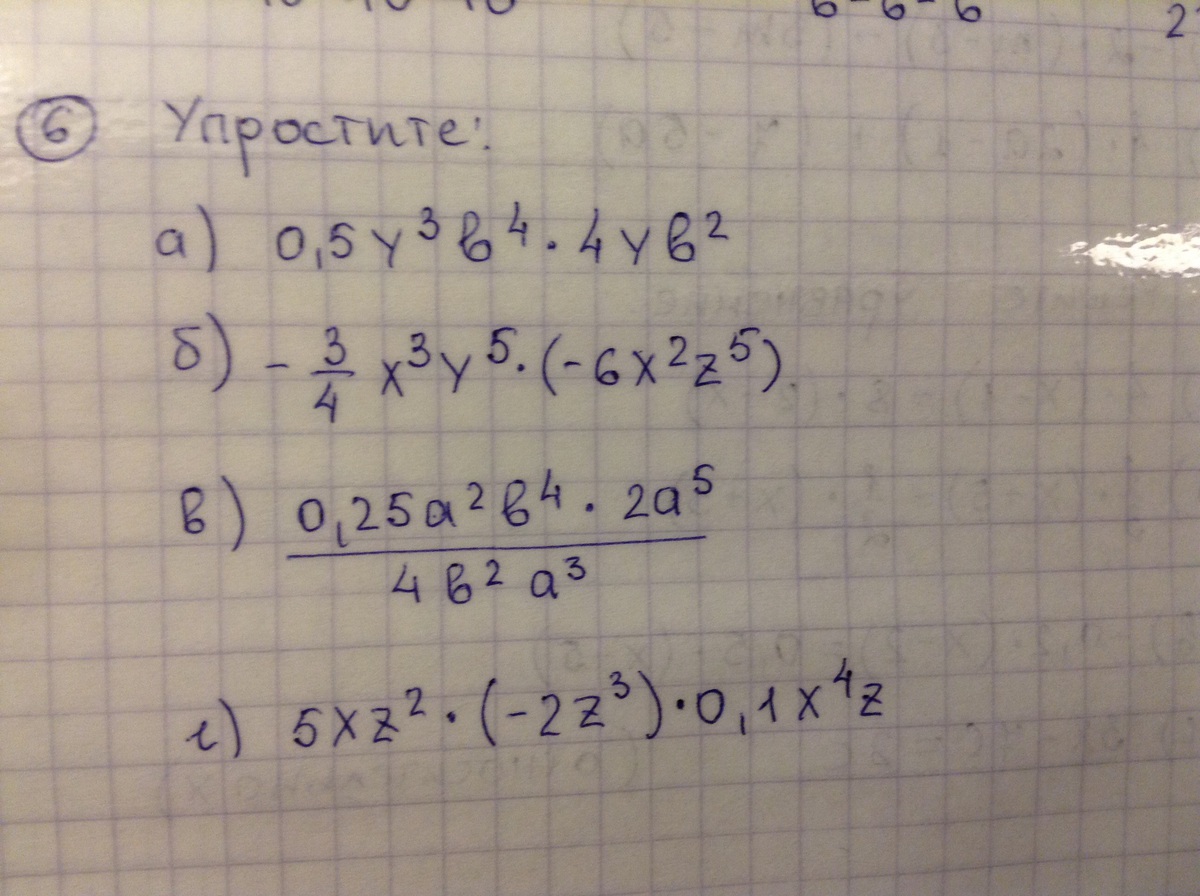 6 - 6 - 6
⑥ Упростите:
а) 0,5y³b⁴ · 4yb²
б) - 3/4 x³y⁵ · (-6x²z⁵)
в) 0,25a²b⁴ · 2a⁵
4b²a³
г) 5xz² · (-2z³) · 0,1x⁴z